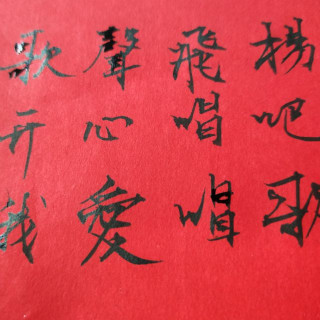 歌聲飛揚
开心唱吧
我愛唱歌